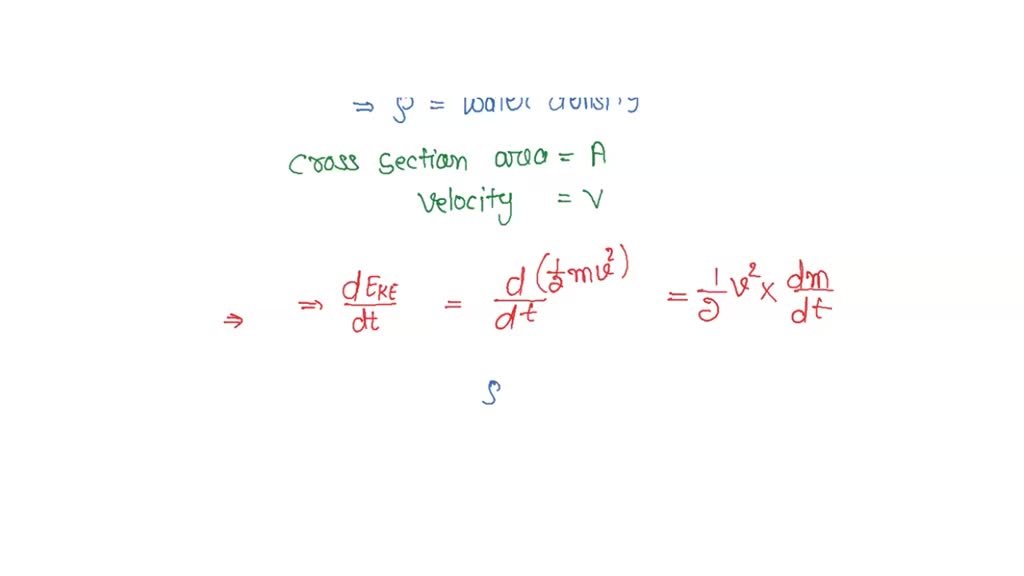 ⇒ ρ = water density
Cross section area = A
Velocity = V
⇒ ⇒ dEKE/dt = d(1/2 mv²)/dt = 1/2 v² × dm/dt
ρ